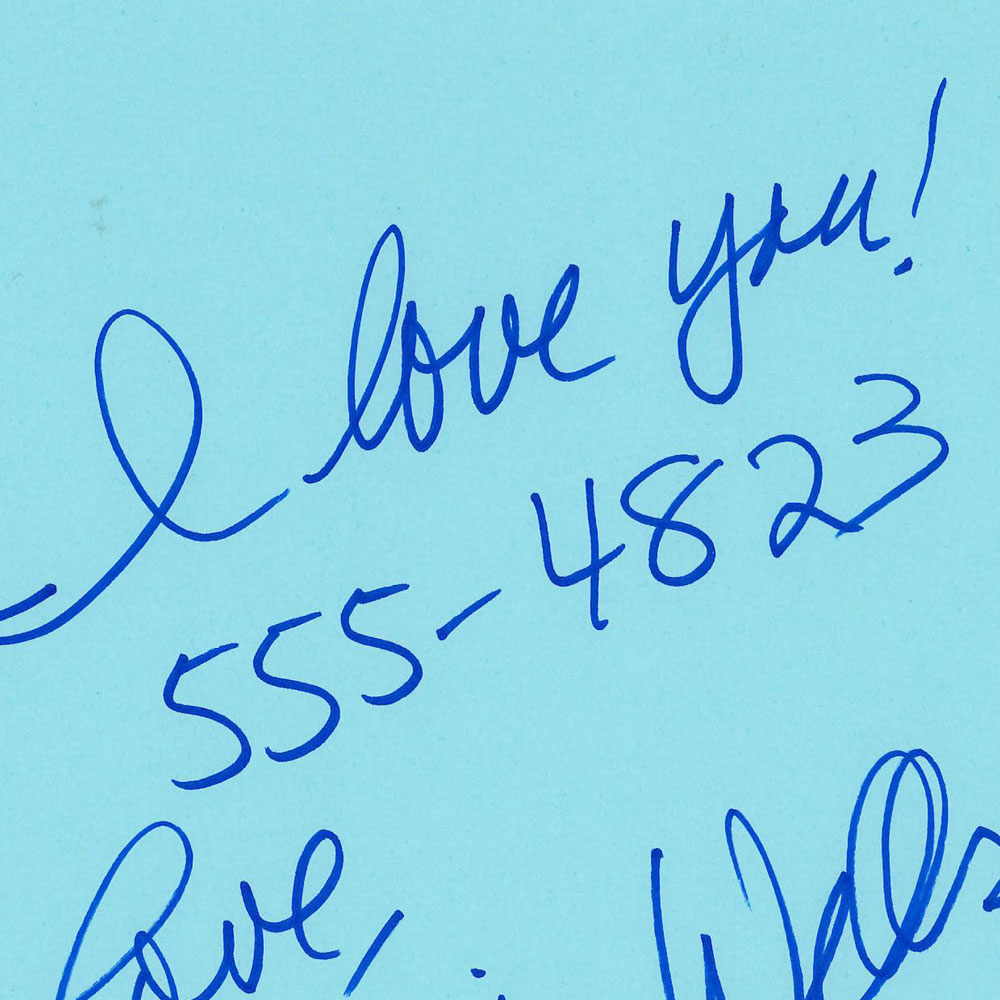 I love you!
555-4823
Love,